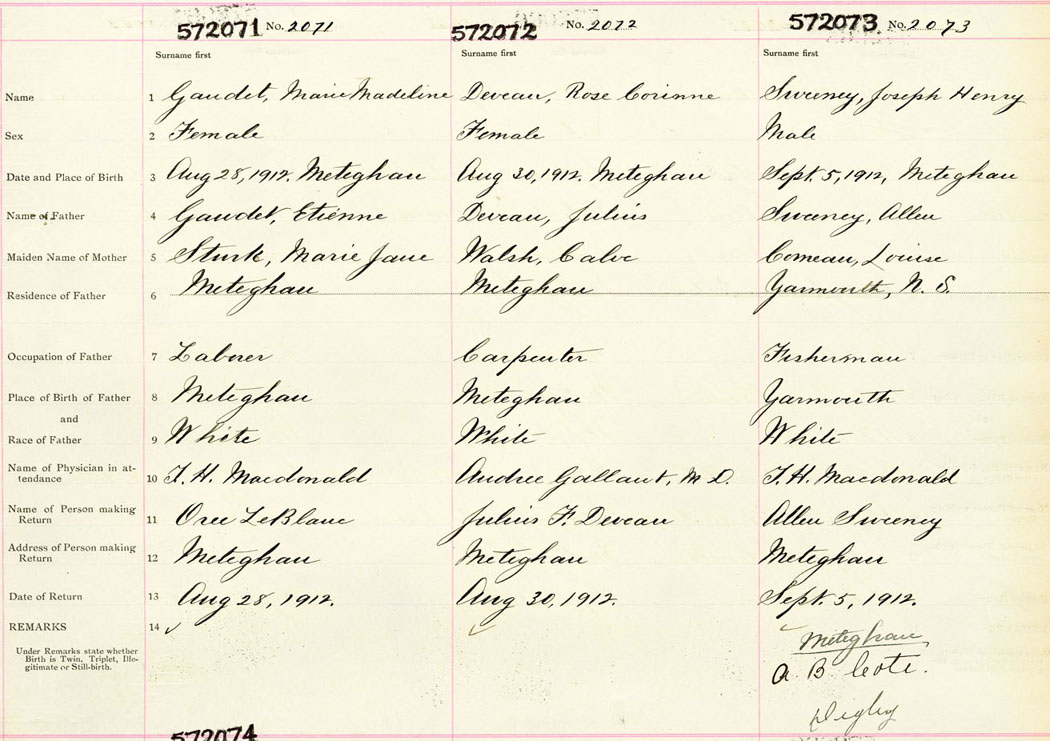 572071 No. 2071 572072 No. 2072 572073 No. 2073
Surname first Surname first Surname first
Name 1 Gaudet, Marie Madeline Deveau, Rose Corinne Sweeney, Joseph Henry
Sex 2 Female Female Male
Date and Place of Birth 3 Aug 28, 1912. Meteghan Aug 30, 1912. Meteghan Sept. 5, 1912, Meteghan
Name of Father 4 Gaudet, Etienne Deveau, Julius Sweeney, Allen
Maiden Name of Mother 5 Sturk, Marie Jane Walsh, Calve Comeau, Louise
Residence of Father 6 Meteghan Meteghan Yarmouth, N. S.
Occupation of Father 7 Laborer Carpenter Fisherman
Place of Birth of Father 8 Meteghan Meteghan Yarmouth
and
Race of Father 9 White White White
Name of Physician in at-
tendance 10 T. H. Macdonald Andree Gallant, M D. T. H. Macdonald
Name of Person making
Return 11 Oree LeBlanc Julius F. Deveau Allen Sweeney
Address of Person making
Return 12 Meteghan Meteghan Meteghan
Date of Return 13 Aug 28, 1912. Aug 30, 1912. Sept. 5, 1912.
REMARKS 14 ✓ ✓ ✓
Meteghan
Under Remarks state whether
Birth is Twin. Triplet, Ille-
gitimate or Still-birth.
A B Cote.
Digby
572074